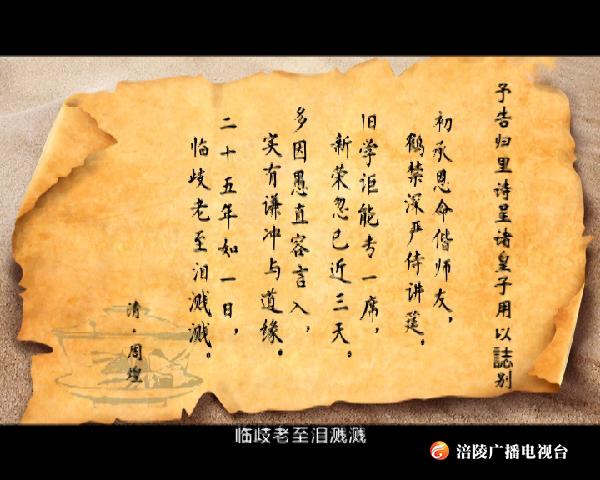 予告归里诗呈诸皇子用以誌别
初承恩命偕师友，
鹤禁深严侍讲筵。
旧学讵能专一席，
新荣忽已近三天。
多因愚直容言入，
实有谦冲与道缘。
二十五年如一日，
临歧老至泪溅溅。
清·周煌
临歧老至泪溅溅
涪陵广播电视台